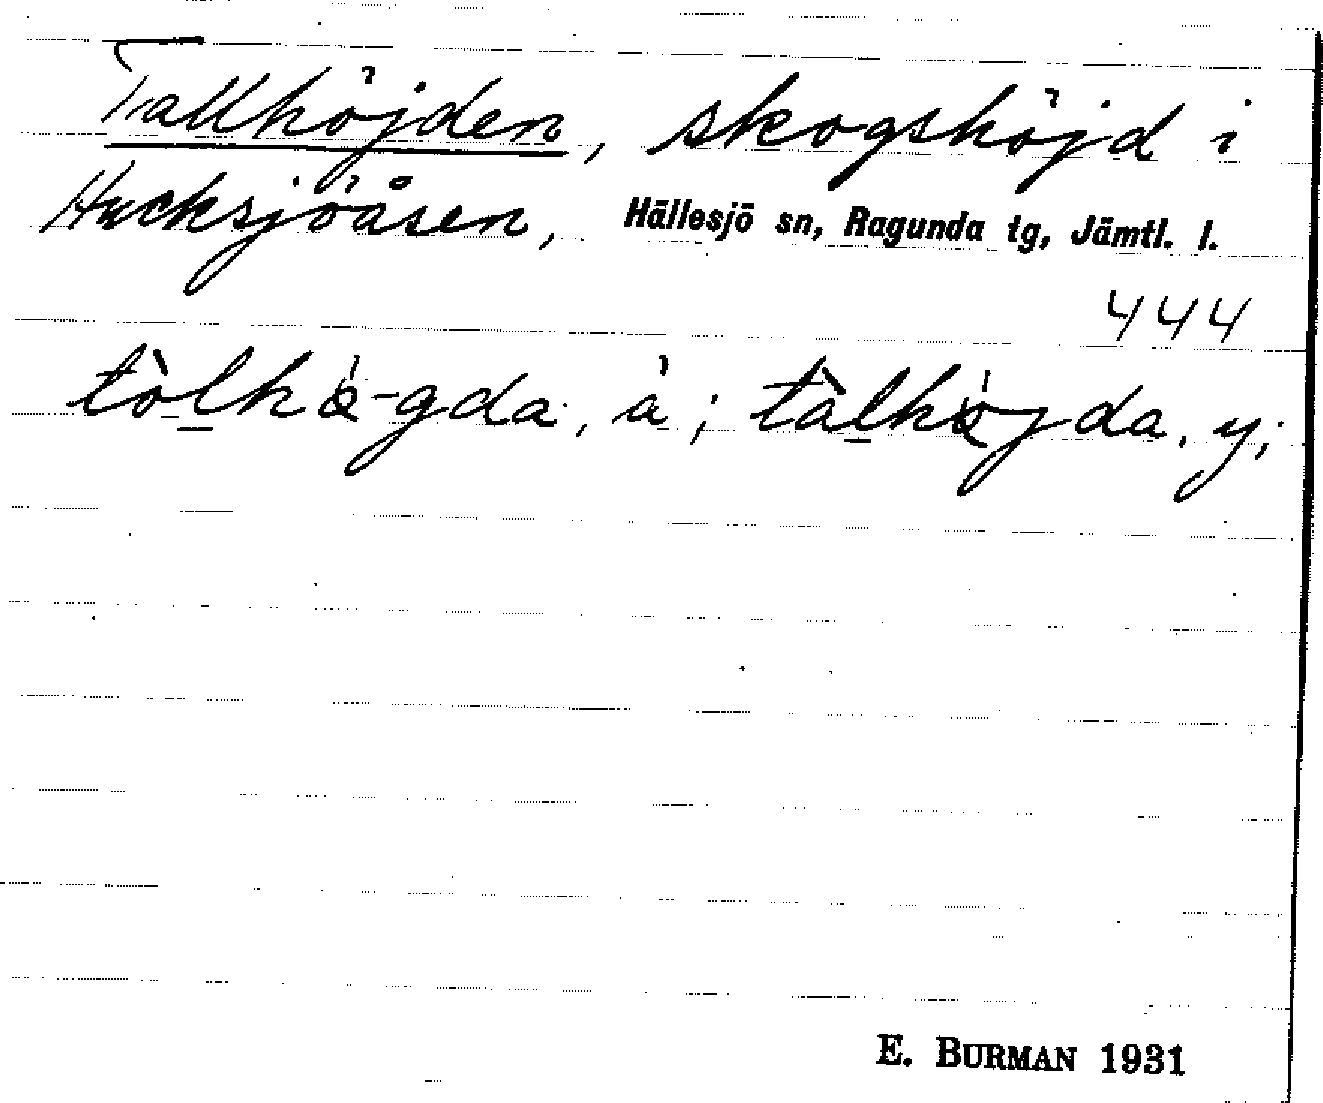 Tallhöjden, skogshöjd i
Hucksjöåsen, Hällesjö sn, Ragunda tg, Jämtl. l.
444
tòlhö̀-gda, à; tàlhö̀jda, y;
E. BURMAN 1931